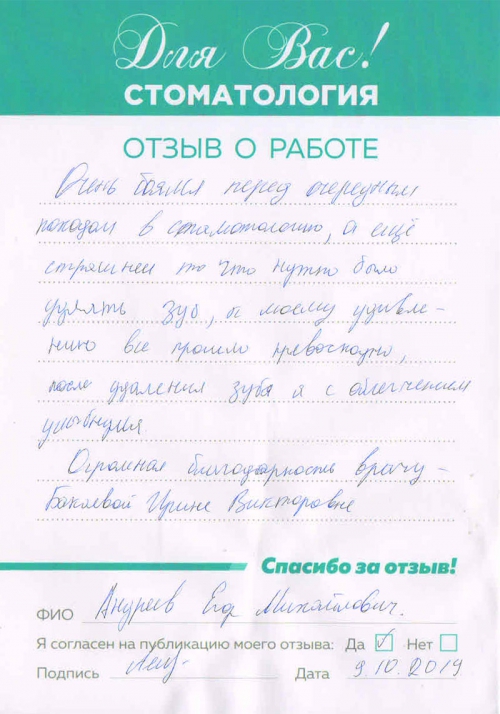 Для Вас!
СТОМАТОЛОГИЯ
ОТЗЫВ О РАБОТЕ
Очень боялся перед очередным
походом в стоматологию, а ещё
страшнее то что нужно было
удалять зуб, к моему удивле-
нию все прошло превосходно,
после удаления зуба я с облегчением
улыбнулся.
Огромная благодарность врачу -
Бакаевой Ирине Викторовне
Спасибо за отзыв!
ФИО Андреев Егор Михайлович.
Я согласен на публикацию моего отзыва: Да ☑ Нет ☐
Подпись Дата 9.10.2019